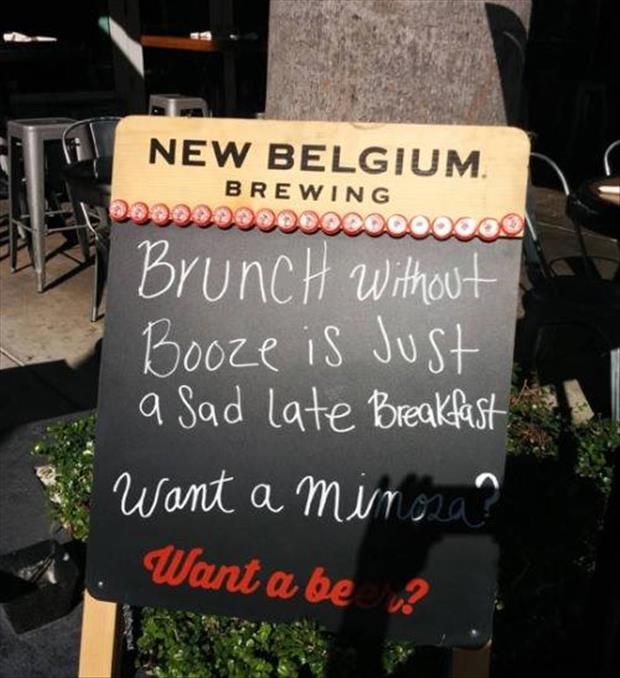 NEW BELGIUM
BREWING
Brunch without
Booze is Just
a Sad late Breakfast
want a mimosa?
Want a beer?